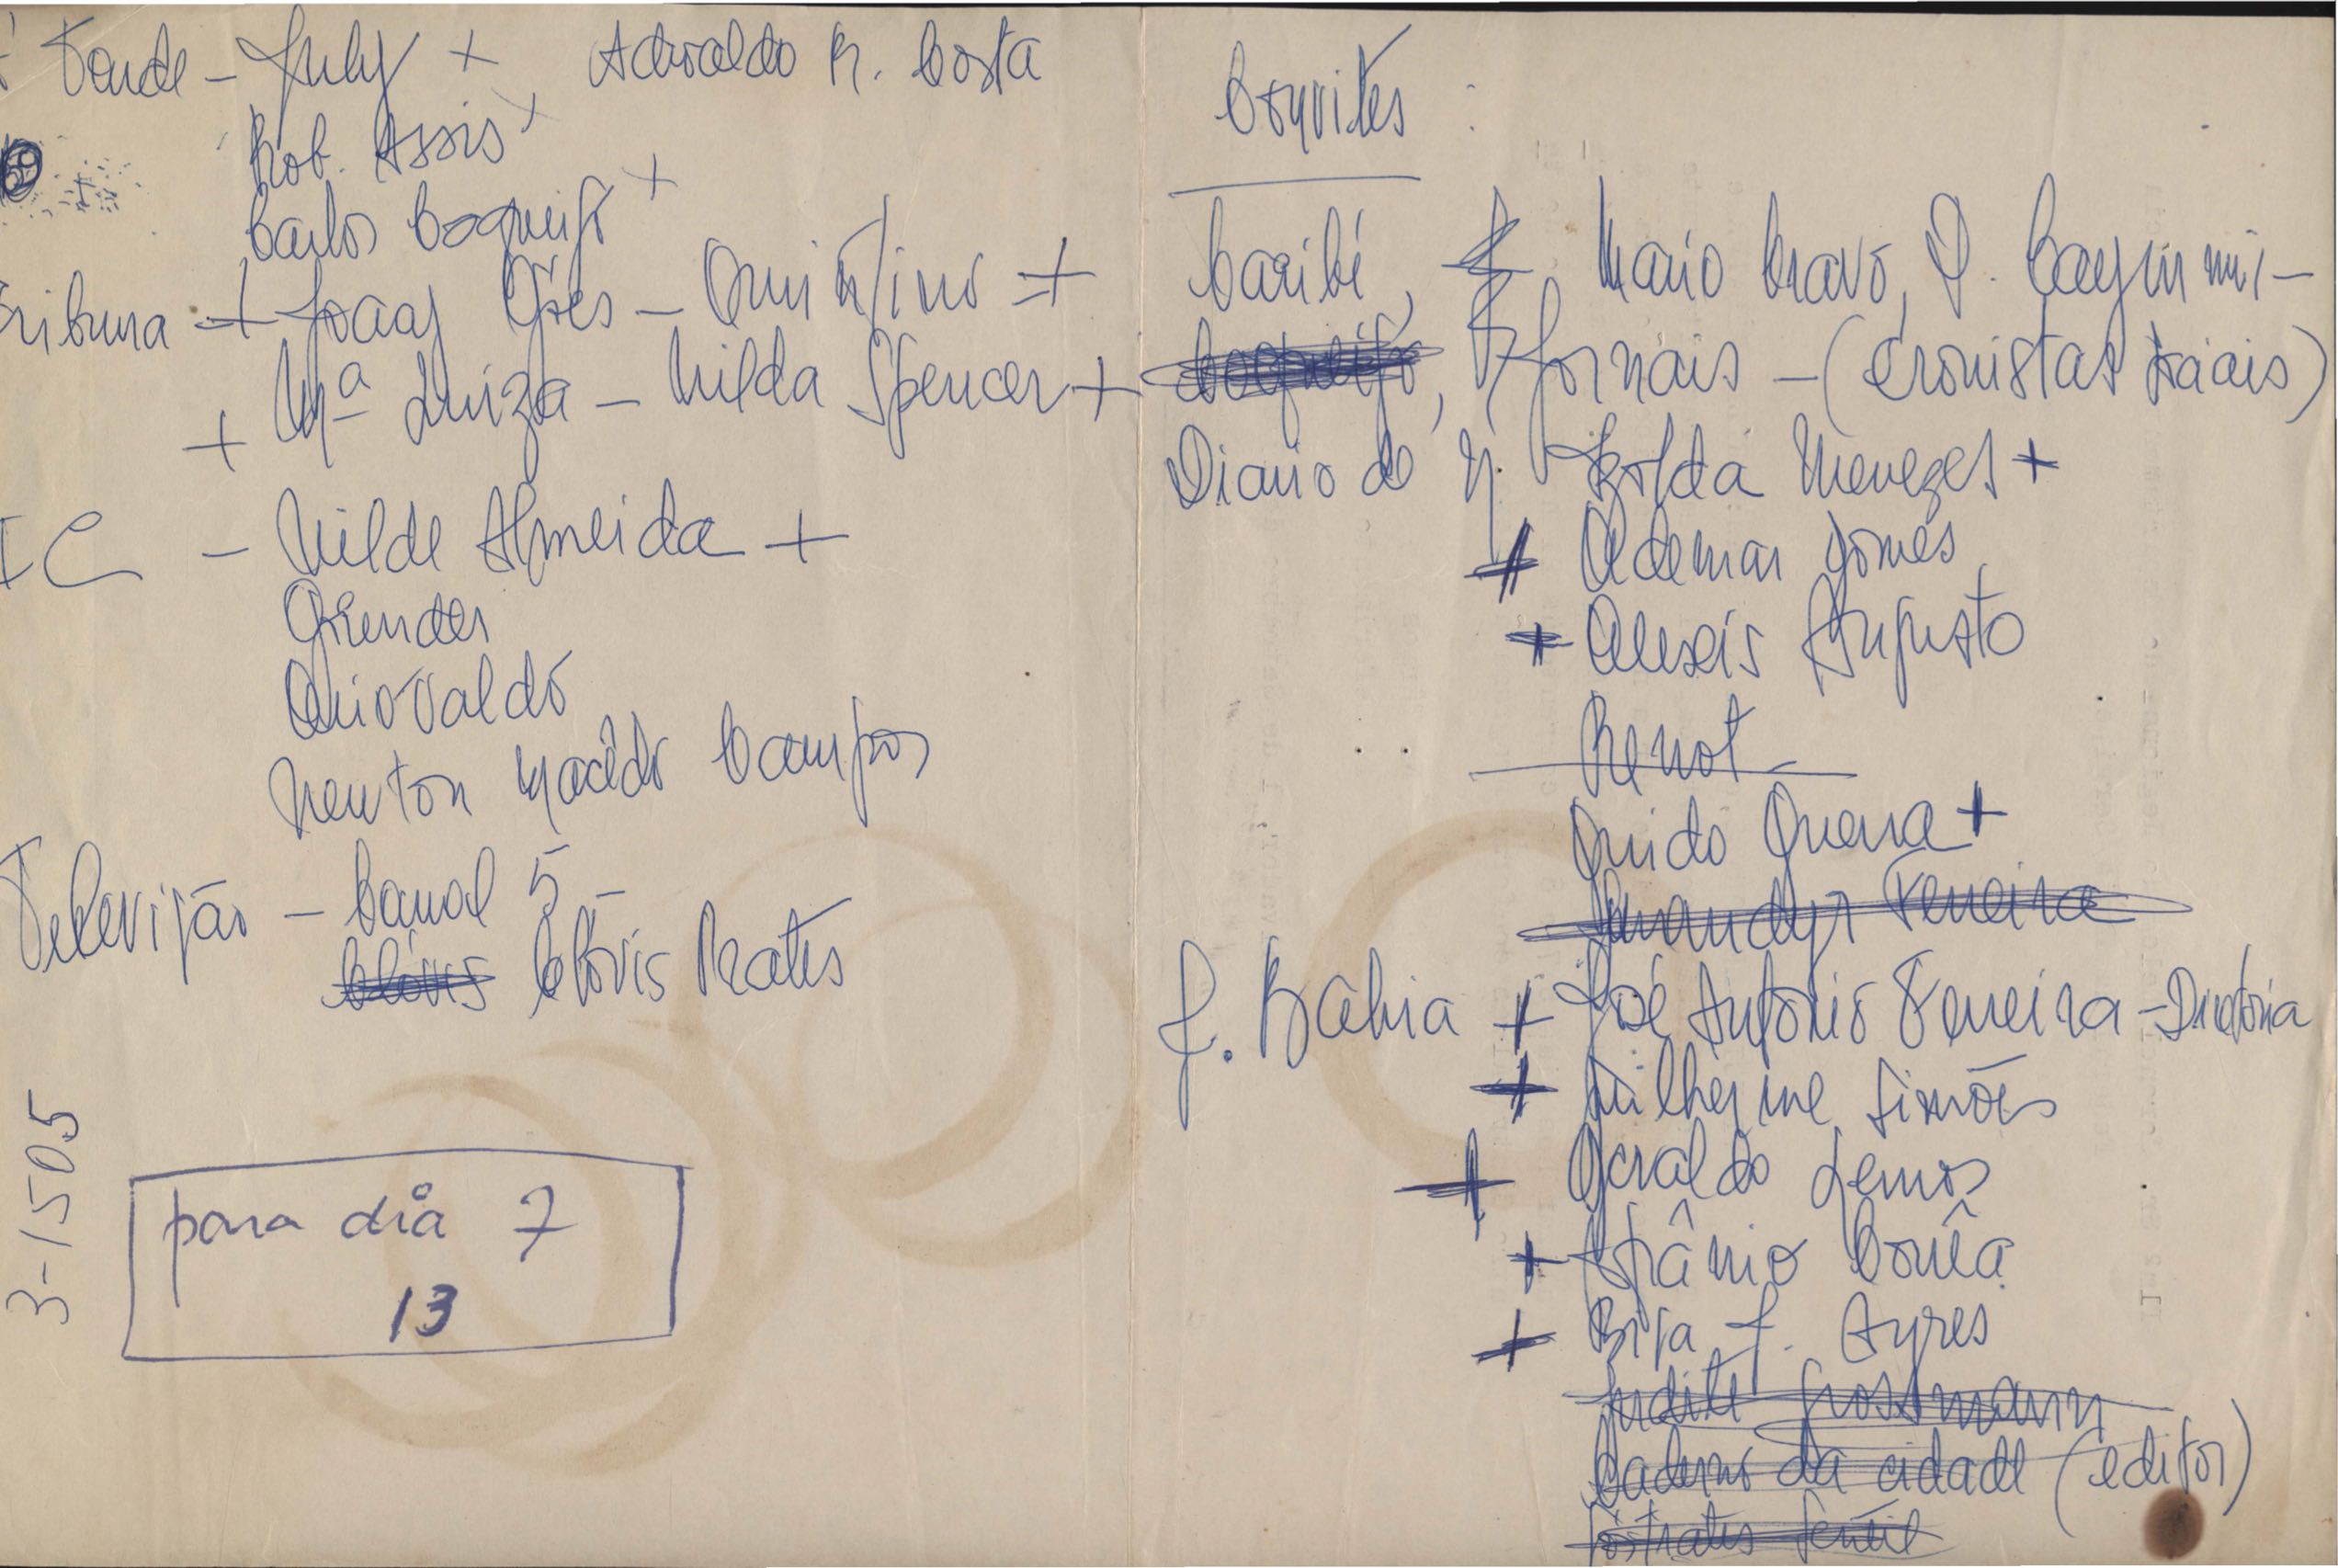 Tarde - July + Adroaldo R. Costa
Rob. Assis +
Carlos Coqueijo +
Tribuna + Joca Góes - Quintino +
+ Mª Luiza - Nilda Spencer +
IC - Nilde Almeida +
Quiovaldo
Newton Macêdo Campos
Televisão - Canal 5 -
Clóvis Clóvis Prates
3-1505
para dia 7
13
Convites :
Caribé, Mario Cravo, D. Caymmi -
Coqueijo, Jornais - (Cronistas sociais)
Diario de N. Isolda Menezes +
+ Ademar Gomes
+ Alexis Augusto
Renot
Guido Guerra +
Jurandyr Ferreira
J. Bahia + José Antonio Ferreira - Diretoria
+ Guilherme Simões
+ Geraldo Lemos
+ Afrânio Corrêa
+ Bisa J. Ayres
Judite Grossmann
Caderno da cidade (editor)
Sóstrates Gentil